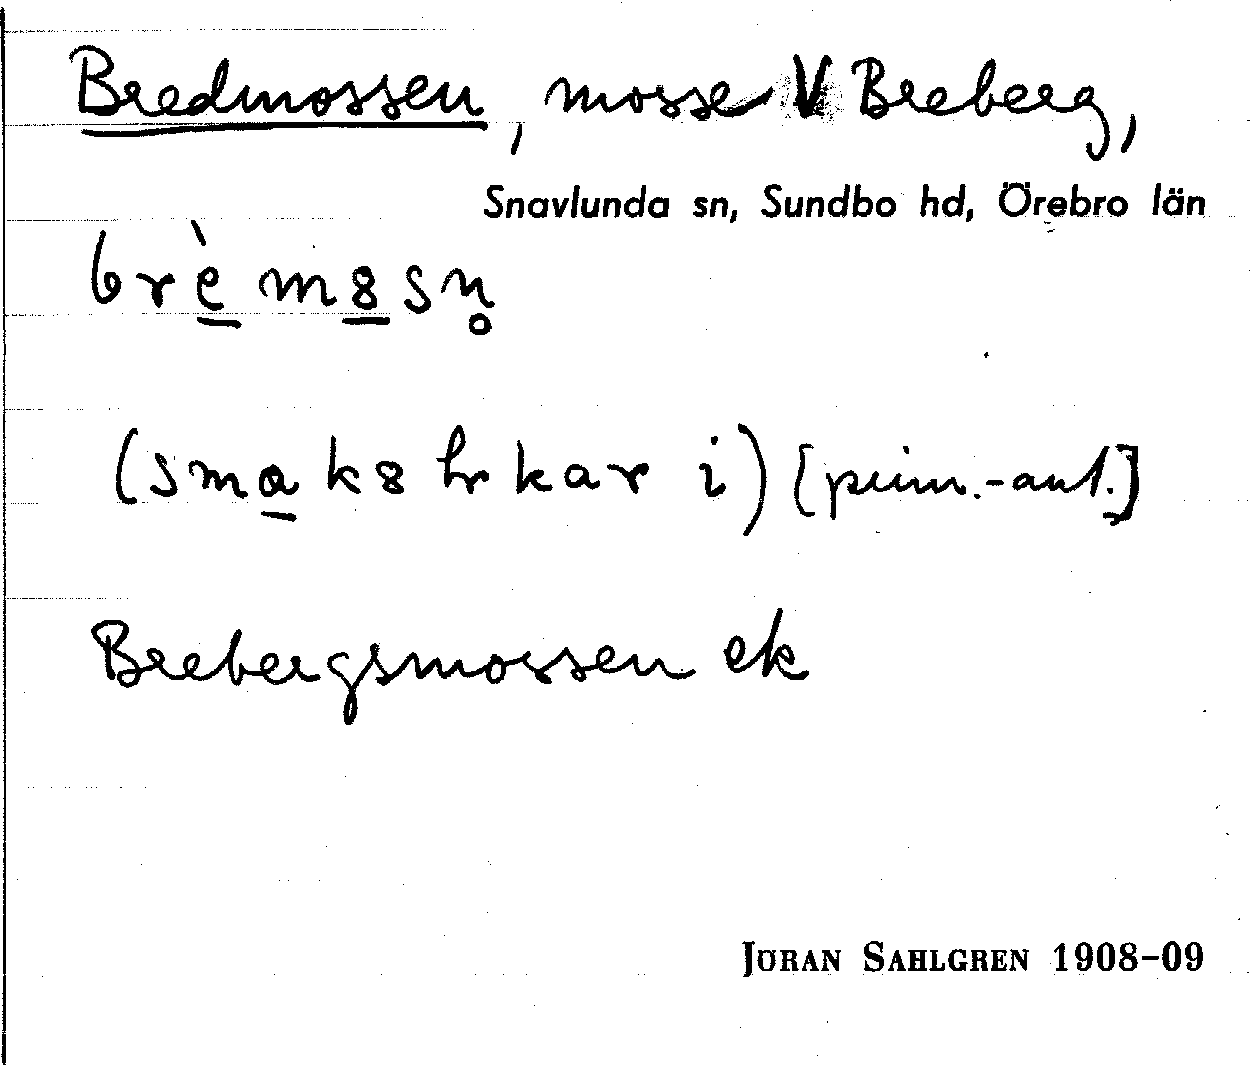 Bredmossen, mosse V Breberg,
Snavlunda sn, Sundbo hd, Örebro län
brèm8sn̥
(smak8 hrkar i) [prim.-ant.]
Brebergsmossen ek
JÖRAN SAHLGREN 1908–09